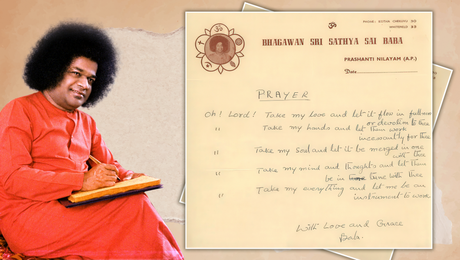 ॐ
BHAGAWAN SRI SATHYA SAI BABA
PRASHANTI NILAYAM (A.P.)
Date
PRAYER
Oh! Lord! Take my Love and let it flow in fullness
of devotion to thee
" Take my hands and let them work
incessantly for thee
" Take my soul and let it be merged in one
with thee
" Take my mind and thoughts and let them
be in tune with thee
" Take my everything and let me be an
instrument to work
With Love and Grace
Baba